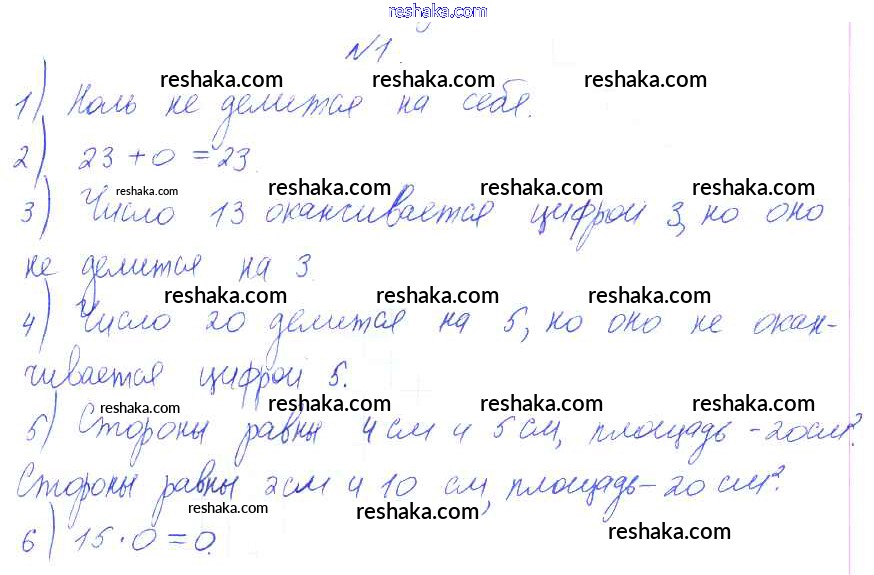 reshaka.com
№1
reshaka.com reshaka.com reshaka.com
1) Ноль не делится на себя.
2) 23 + 0 = 23.
reshaka.com reshaka.com reshaka.com reshaka.com
3) Число 13 оканчивается цифрой 3, но оно
не делится на 3.
reshaka.com reshaka.com reshaka.com
4) Число 20 делится на 5, но оно не окан-
чивается цифрой 5.
reshaka.com reshaka.com reshaka.com reshaka.com
5) Стороны равны 4 см и 5 см, площадь - 20 см².
Стороны равны 2 см и 10 см, площадь - 20 см².
reshaka.com reshaka.com reshaka.com
6) 15 · 0 = 0.